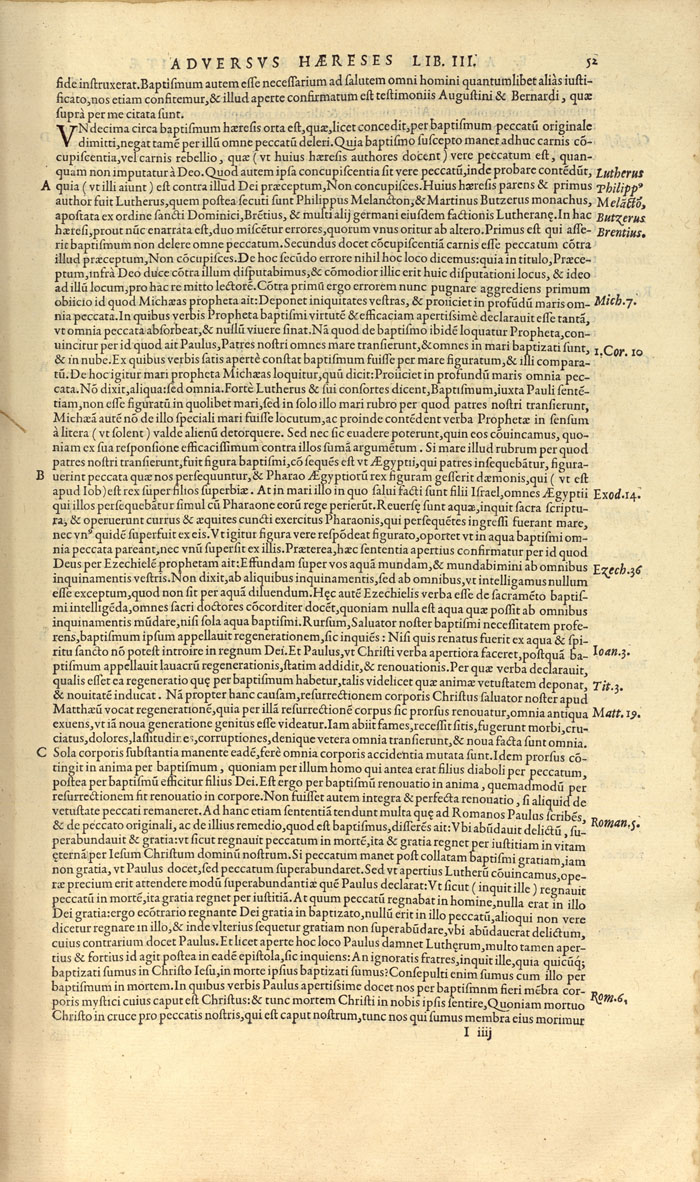 ADVERSVS HÆRESES LIB. III. 52
fide instruxerat. Baptismum autem esse necessarium ad salutem omni homini quantumlibet aliàs iusti-
ficato, nos etiam confitemur, & illud aperte confirmatum est testimoniis Augustini & Bernardi, quæ
suprà per me citata sunt.
VNdecima circa baptismum hæresis orta est, quæ, licet concedit, per baptismum peccatū originale
dimitti, negat tamē per illū omne peccatū deleri. Quia baptismo suscepto manet adhuc carnis cō-
cupiscentia, vel carnis rebellio, quæ (vt huius hæresis authores docent) vere peccatum est, quan-
quam non imputatur à Deo. Quod autem ipsa concupiscentia sit vere peccatū, inde probare contēdūt, Lutherus
A quia (vt illi aiunt) est contra illud Dei præceptum, Non concupisces. Huius hæresis parens & primus Philippꝰ
author fuit Lutherus, quem postea secuti sunt Philippus Melancton, & Martinus Butzerus monachus, Melāctō,
apostata ex ordine sancti Dominici, Brētius, & multi alij germani eiusdem factionis Lutheranę. In hac Butzerus
hæresi, prout nūc enarrata est, duo miscētur errores, quorum vnus oritur ab altero. Primus est qui asse- Brentius.
rit baptismum non delere omne peccatum. Secundus docet cōcupiscentiā carnis esse peccatum cōtra
illud præceptum, Non cōcupisces. De hoc secūdo errore nihil hoc loco dicemus: quia in titulo, Præce-
ptum, infrà Deo duce cōtra illum disputabimus, & cōmodior illic erit huic disputationi locus, & ideo
ad illū locum, pro hac re mitto lectorē. Cōtra primū ergo errorem nunc pugnare aggrediens primum
obiicio id quod Michæas propheta ait: Deponet iniquitates vestras, & proiiciet in profūdū maris om- Mich. 7.
nia peccata. In quibus verbis Propheta baptismi virtutē & efficaciam apertissimè declarauit esse tantā,
vt omnia peccata absorbeat, & nullū viuere sinat. Nā quod de baptismo ibidē loquatur Propheta, con-
uincitur per id quod ait Paulus, Patres nostri omnes mare transierunt, & omnes in mari baptizati sunt, 1. Cor. 10
& in nube. Ex quibus verbis satis apertè constat baptismum fuisse per mare figuratum, & illi compara-
tū. De hoc igitur mari propheta Michæas loquitur, quū dicit: Proiiciet in profundū maris omnia pec-
cata. Nō dixit, aliqua: sed omnia. Fortè Lutherus & sui consortes dicent, Baptismum, iuxta Pauli sentē-
tiam, non esse figuratū in quolibet mari, sed in solo illo mari rubro per quod patres nostri transierunt,
Michæā autē nō de illo speciali mari fuisse locutum, ac proinde contēdent verba Prophetæ in sensum
à litera (vt solent) valde alienū detorquere. Sed nec sic euadere poterunt, quin eos cōuincamus, quo-
niam ex sua responsione efficacissimum contra illos sumā argumētum. Si mare illud rubrum per quod
patres nostri transierunt, fuit figura baptismi, cō sequēs est vt Ægyptii, qui patres insequebātur, figura-
B uerint peccata quæ nos persequuntur, & Pharao Ægyptiorū rex figuram gesserit dæmonis, qui (vt est
apud Iob) est rex super filios superbiæ. At in mari illo in quo salui facti sunt filii Israel, omnes Ægyptii Exod. 14.
qui illos persequebātur simul cū Pharaone eorū rege perierūt. Reuersę sunt aquæ, inquit sacra scriptu-
ra, & operuerunt currus & æquites cuncti exercitus Pharaonis, qui persequētes ingressi fuerant mare,
nec vnꝰ quidē superfuit ex eis. Vt igitur figura vere respōdeat figurato, oportet vt in aqua baptismi om-
nia peccata pareant, nec vnū supersit ex illis. Præterea, hæc sententia apertius confirmatur per id quod
Deus per Ezechielē prophetam ait: Effundam super vos aquā mundam, & mundabimini ab omnibus Ezech. 36
inquinamentis vestris. Non dixit, ab aliquibus inquinamentis, sed ab omnibus, vt intelligamus nullum
esse exceptum, quod non sit per aquā diluendum. Hęc autē Ezechielis verba esse de sacramēto baptis-
mi intelligēda, omnes sacri doctores cōcorditer docēt, quoniam nulla est aqua quæ possit ab omnibus
inquinamentis mūdare, nisi sola aqua baptismi. Rursum, Saluator noster baptismi necessitatem profe-
rens, baptismum ipsum appellauit regenerationem, sic inquiēs: Nisi quis renatus fuerit ex aqua & spi-
ritu sancto nō potest introire in regnum Dei. Et Paulus, vt Christi verba apertiora faceret, postquā ba- Ioan. 3.
ptismum appellauit lauacrū regenerationis, statim addidit, & renouationis. Per quæ verba declarauit,
qualis esset ea regeneratio quę per baptismum habetur, talis videlicet quæ animæ vetustatem deponat, Tit. 3.
& nouitatē inducat. Nā propter hanc causam, resurrectionem corporis Christus saluator noster apud
Matthæū vocat regenerationē, quia per illā resurrectionē corpus sic prorsus renouatur, omnia antiqua Matt. 19.
exuens, vt iā noua generatione genitus esse videatur. Iam abiit fames, recessit sitis, fugerunt morbi, cru-
ciatus, dolores, lassitudines, corruptiones, denique vetera omnia transierunt, & noua facta sunt omnia.
C Sola corporis substantia manente eadē, ferè omnia corporis accidentia mutata sunt. Idem prorsus cō-
tingit in anima per baptismum, quoniam per illum homo qui antea erat filius diaboli per peccatum,
postea per baptismū efficitur filius Dei. Est ergo per baptismū renouatio in anima, quemadmodū per
resurrectionem fit renouatio in corpore. Non fuisset autem integra & perfecta renouatio, si aliquid de
vetustate peccati remaneret. Ad hanc etiam sententiā tendunt multa quę ad Romanos Paulus scribēs,
& de peccato originali, ac de illius remedio, quod est baptismus, disserēs ait: Vbi abūdauit delictū, su- Roman. 5.
perabundauit & gratia: vt sicut regnauit peccatum in mortē, ita & gratia regnet per iustitiam in vitam
ęternā per Iesum Christum dominū nostrum. Si peccatum manet post collatam baptismi gratiam, iam
non gratia, vt Paulus docet, sed peccatum superabundaret. Sed vt apertius Lutherū cōuincamus, ope-
ræ precium erit attendere modū superabundantiæ quē Paulus declarat: Vt sicut (inquit ille) regnauit
peccatū in mortē, ita gratia regnet per iustitiā. At quum peccatū regnabat in homine, nulla erat in illo
Dei gratia: ergo ecōtrario regnante Dei gratia in baptizato, nullū erit in illo peccatū, alioqui non vere
dicetur regnare in illo, & inde vlterius sequetur gratiam non superabūdare, vbi abūdauerat delictum,
cuius contrarium docet Paulus. Et licet aperte hoc loco Paulus damnet Lutherum, multo tamen aper-
tius & fortius id agit postea in eadē epistola, sic inquiens: An ignoratis fratres, inquit ille, quia quicūq;
baptizati sumus in Christo Iesu, in morte ipsius baptizati sumus? Consepulti enim sumus cum illo per
baptismum in mortem. In quibus verbis Paulus apertissime docet nos per baptismnm fieri mēbra cor-
poris mystici cuius caput est Christus: & tunc mortem Christi in nobis ipsis sentire, Quoniam mortuo Rom. 6,
Christo in cruce pro peccatis nostris, qui est caput nostrum, tunc nos qui sumus membra eius morimur
I iiij